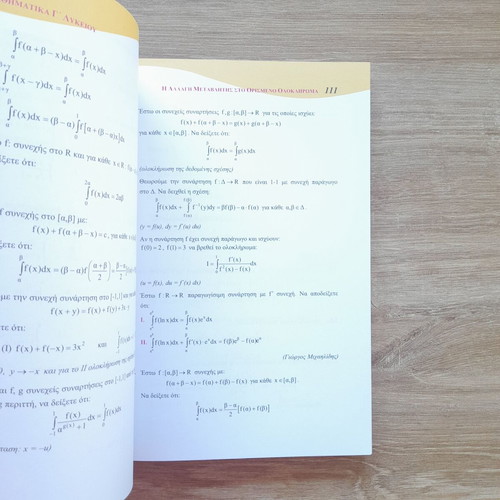 ΘΗΜΑΤΙΚΑ Γ΄ ΛΥΚΕΙΟΥ
∫αβ f(α+β−x)dx = ∫αβ f(x)dx
∫ f(x−γ)dx = ∫αβ f(x)dx
∫αβ f(x)dx = (β−α)∫01 f[α+(β−α)x]dx
f: συνεχής στο R και για κάθε x∈R
ίξετε ότι:
∫02α f(x)dx = 2αβ
f συνεχής στο [α,β] με:
f(x)+f(α+β−x)=c, για κάθε
ίξετε ότι:
∫αβ f(x)dx = (β−α)f((α+β)/2) =
με την συνεχή συνάρτηση στο [-1,1]
f(x+y) = f(x)+f(y)+
τε ότι:
(I) f(x)+f(−x)=3x² και
0, y→−x και για το II ολοκλήρωση
αι f, g συνεχείς συναρτήσεις στο [-1,1]
ς περιττή, να δείξετε ότι:
∫−11 f(x)/(α^g(x)+1) dx = ∫01 f(x)dx
σταση: x = −u)
Η ΑΛΛΑΓΗ ΜΕΤΑΒΛΗΤΗΣ ΣΤΟ ΟΡΙΣΜΕΝΟ ΟΛΟΚΛΗΡΩΜΑ 111
Έστω οι συνεχείς συναρτήσεις, f, g :[α,β]→R για τις οποίες ισχύει:
f(x)+f(α+β−x)=g(x)+g(α+β−x)
για κάθε x∈[α,β]. Να δείξετε ότι:
∫αβ f(x)dx = ∫αβ g(x)dx
(ολοκλήρωση της δεδομένης σχέσης)
Θεωρούμε την συνάρτηση f :Δ→R που είναι 1-1 με συνεχή παράγωγο
στο Δ. Να δειχθεί η σχέση:
∫αβ f(x)dx + ∫f(α)f(β) f⁻¹(y)dy = βf(β)−α·f(α) για κάθε α,β∈Δ.
(y = f(x), dy = f΄(x) dx)
Αν η συνάρτηση f έχει συνεχή παράγωγο και ισχύουν:
f(0)=2, f(1)=3 να βρεθεί το ολοκλήρωμα:
I = ∫01 f'(x)/(f²(x)−f(x)) dx
(u = f(x), du = f΄(x) dx)
Έστω f :R→R παραγωγίσιμη συνάρτηση με f' συνεχή. Να αποδείξετε
ότι:
I. ∫ f(lnx)dx = ∫αβ f(x)eˣdx
II. ∫ f(lnx)dx + ∫αβ f'(x)·eˣdx = f(β)eᵝ−f(α)eᵅ
(Γιώργος Μιχαηλίδης)
Έστω f :[α,β]→R συνεχής με:
f(α+β−x)=f(α)+f(β)−f(x) για κάθε x∈[α,β].
Να δείξετε ότι:
∫αβ f(x)dx = (β−α)/2 [f(α)+f(β)]